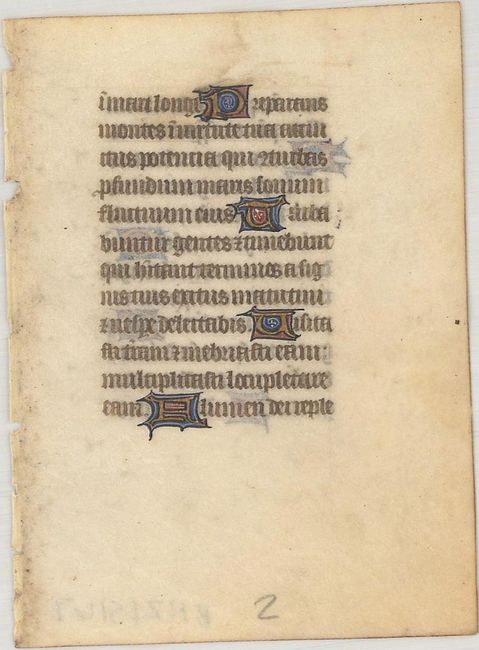 i mari longe Preparans
montes i virtute tua accin
ctus potencia qui 9turbas
pfundum maris sonum
fluctuum eius Turba
buntur gentes ⁊ timebunt
qui hitant terminos a sig
nis tuis exitus matutini
⁊ vespe delectabis Visita
sti tram ⁊ inebriasti eam:
multiplicasti locupletare
eam Flumen dei reple
2